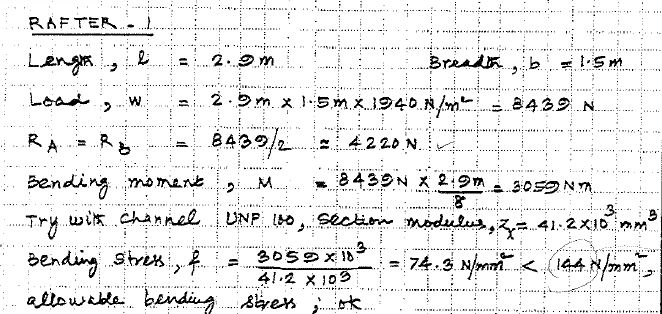 RAFTER - 1
Length, l = 2.9m Breadth, b = 1.5m
Load, w = 2.9m x 1.5m x 1940 N/m² = 8439 N
RA = RB = 8439/2 = 4220 N
Bending moment, M = 8439N x 2.9m/8 = 3059 Nm
Try with channel UNP 100, section modulus, Zx = 41.2x10³ mm³
Bending stress, f = 3059 x 10³/41.2 x 10³ = 74.3 N/mm² < 144 N/mm²,
allowable bending stress; ok